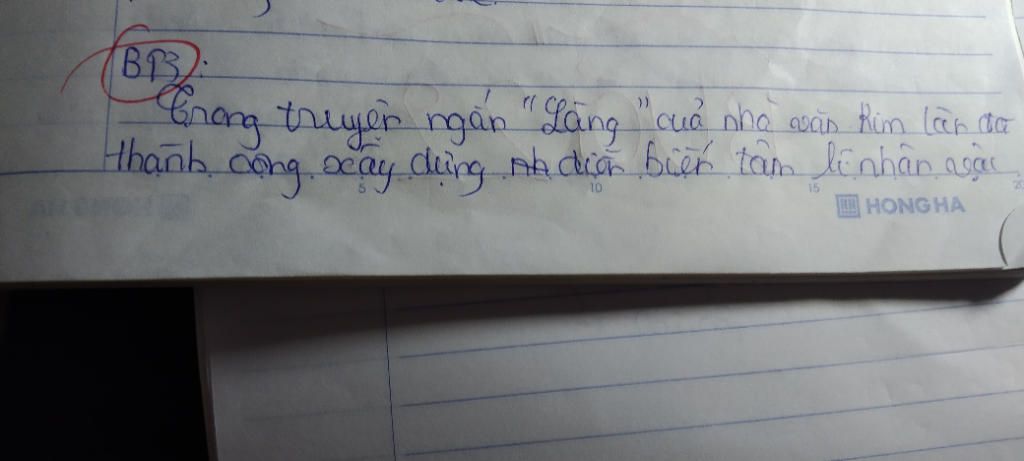 BP3:
Trong truyện ngắn "Làng" của nhà văn Kim Lân đã
thành công xây dựng diễn biến tâm lí nhân vật
5 10 15 20
HONG HA